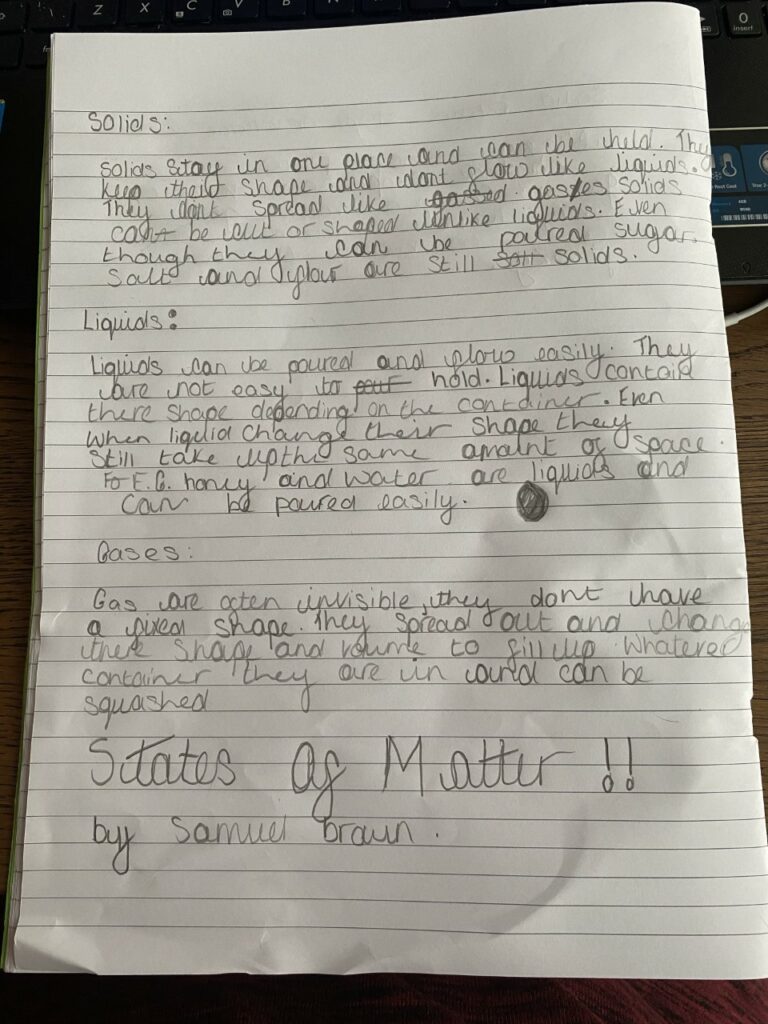 Solids:
solids stay in one place and can be held. They
keep their shape and dont flow like liquids.
They dont spread like gasses solids
can be cut or shaped unlike liquids. Even
though they can be poured sugar,
Salt and flour are still solids.
Liquids:
Liquids can be poured and flow easily. They
are not easy to hold. Liquids
there shape depending on the container. Even
when liquid change their shape they
still take up the same amount of space.
Fo E.G. honey and water are liquids and
can be poured easily.
Gases:
Gas are often invisible, they dont have
a fixed shape. They spread out and change
there shape and volume to fill up whatered
container they are in and can be
squashed
States of Matter !!
by Samuel Braun.